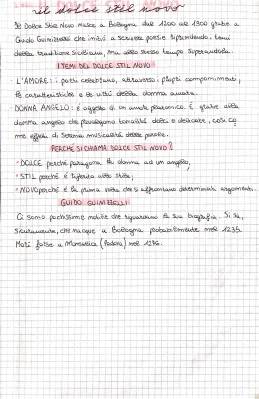 il dolce stil novo
Il Dolce Stil Novo nasce a Bologna dal 1200 al 1300 grazie a
Guido Guinizzelli che iniziò a scrivere poesie riprendendo i temi
della tradizione siciliana, ma allo stesso tempo superandola.
I TEMI DEL DOLCE STIL NOVO
L'AMORE: i poeti celebrano, attraverso i propri componimenti,
le caratteristiche e le virtù della donna amata.
DONNA ANGELO: è oggetto di un amore platonico. È grazie alla
donna angelo che prevalgono tonalità dolci e delicate, così co
me effetti di serena musicalità delle parole.
PERCHÉ SI CHIAMA DOLCE STIL NOVO?
· DOLCE perché paragona la donna ad un angelo,
· STIL perché è riferito allo stile,
· NOVO perché è la prima volta che si affrontano determinati argomenti.
GUIDO GUINIZELLI
Ci sono pochissime notizie che riguardano la sua biografia. Si sa,
sicuramente, che nacque a Bologna probabilmente nel 1235.
Morì forse a Monselice (Padova) nel 1276.